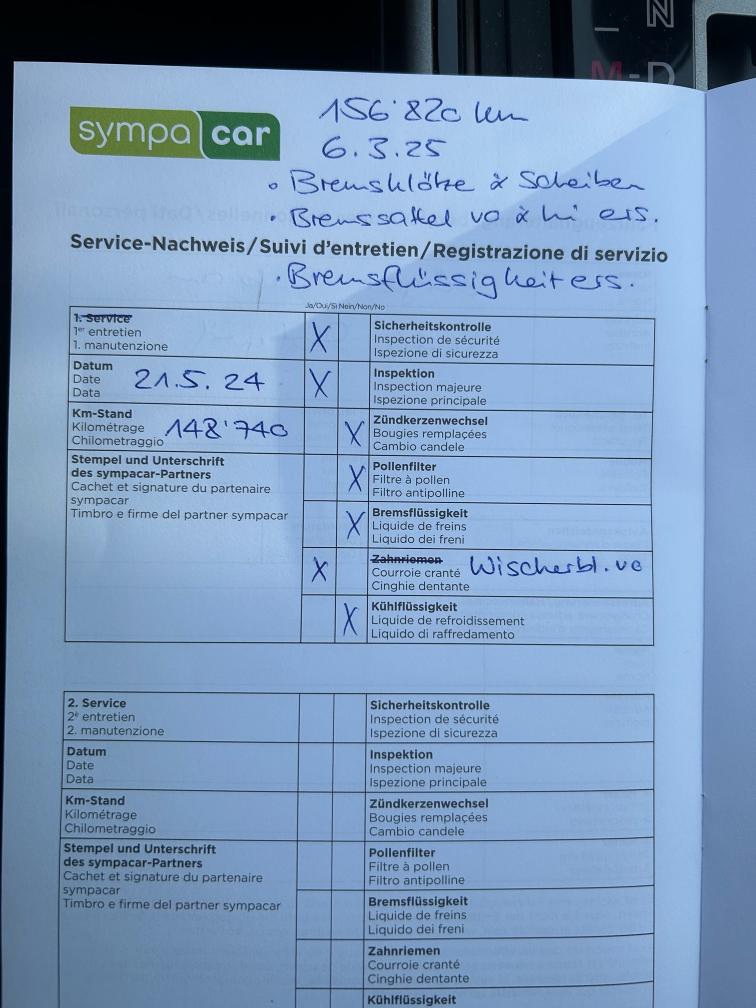 N
M-D
156'820 km
sympa car
6.3.25
• Bremsklötze & Scheiben
• Bremssattel vo & hi ers.
Service-Nachweis/Suivi d'entretien/Registrazione di servizio
• Bremsflüssigkeit ers.
Ja/Oui/Sì Nein/Non/No
1. Service
1er entretien
1. manutenzione
X
Sicherheitskontrolle
Inspection de sécurité
Ispezione di sicurezza
Datum
Date
Data
21.5.24
X
Inspektion
Inspection majeure
Ispezione principale
Km-Stand
Kilométrage
Chilometraggio
148'740
X
Zündkerzenwechsel
Bougies remplaçées
Cambio candele
Stempel und Unterschrift
des sympacar-Partners
Cachet et signature du partenaire
sympacar
Timbro e firme del partner sympacar
X
Pollenfilter
Filtre à pollen
Filtro antipolline
X
Bremsflüssigkeit
Liquide de freins
Liquido dei freni
X
Zahnriemen
Courroie cranté
Cinghie dentante
Wischerbl. vo
X
Kühlflüssigkeit
Liquide de refroidissement
Liquido di raffredamento
2. Service
2e entretien
2. manutenzione
Sicherheitskontrolle
Inspection de sécurité
Ispezione di sicurezza
Datum
Date
Data
Inspektion
Inspection majeure
Ispezione principale
Km-Stand
Kilométrage
Chilometraggio
Zündkerzenwechsel
Bougies remplaçées
Cambio candele
Stempel und Unterschrift
des sympacar-Partners
Cachet et signature du partenaire
sympacar
Timbro e firme del partner sympacar
Pollenfilter
Filtre à pollen
Filtro antipolline
Bremsflüssigkeit
Liquide de freins
Liquido dei freni
Zahnriemen
Courroie cranté
Cinghie dentante
Kühlflüssigkeit